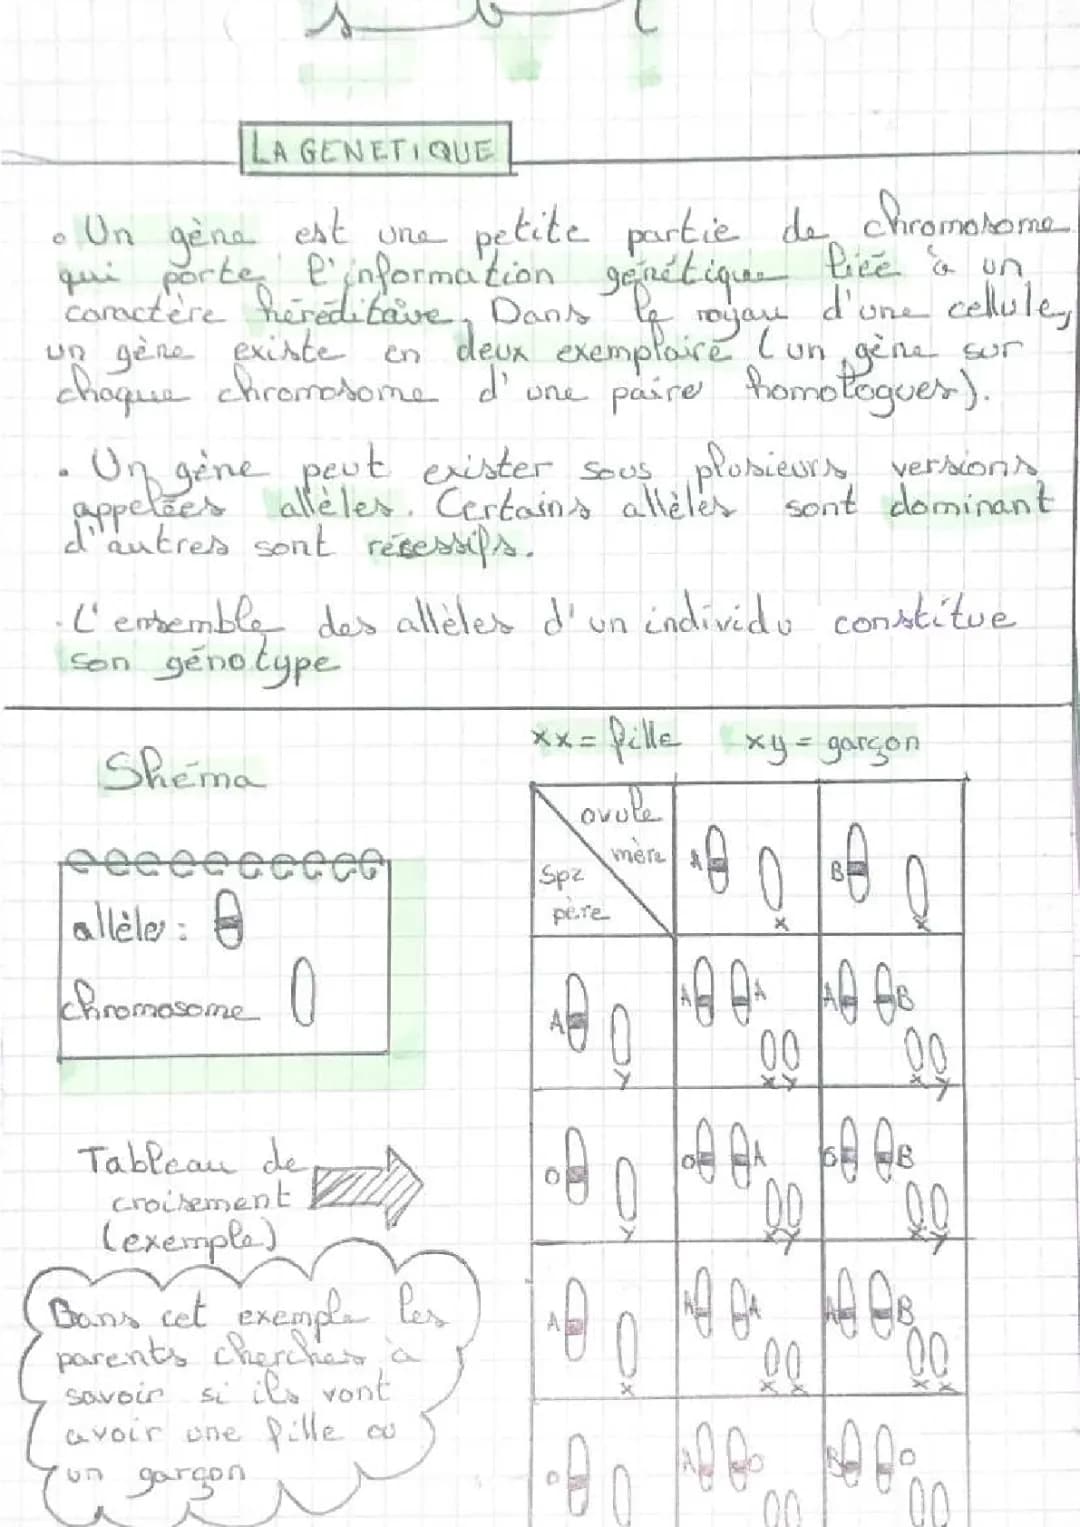 svt
LA GENETIQUE
• Un gène est une petite partie de chromosome
qui porte l'information génétique liée à un
caractère héréditaire. Dans le noyau d'une cellule,
un gène existe en deux exemplaire (un gène sur
chaque chromosome d'une paire homologues).
• Un gène peut exister sous plusieurs versions
appelées allèles. Certains allèles sont dominant
d'autres sont récessifs.
• L'ensemble des allèles d'un individu constitue
son génotype
Shéma
allèle :
chromosome
Tableau de
croisement
(exemple)
Dans cet exemple les
parents cherches à
savoir si ils vont
avoir une fille ou
un garçon
xx = fille xy = garçon
ovule
mère
Spz
père
A x B x
A y A A x y A B x y
O y O A x y O B x y
A x A A x x A B x x
O A O B O